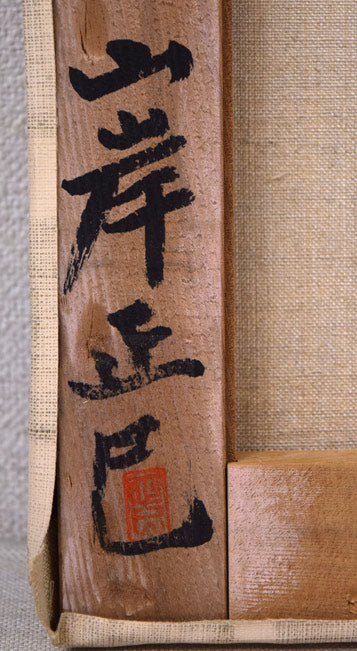 山岸正巳